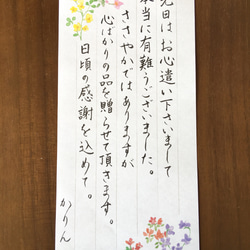 先日はお心遣い下さいまして
本当に有難うございました。
ささやかではありますが
心ばかりの品を贈らせて頂きます。
日頃の感謝を込めて。
かりん